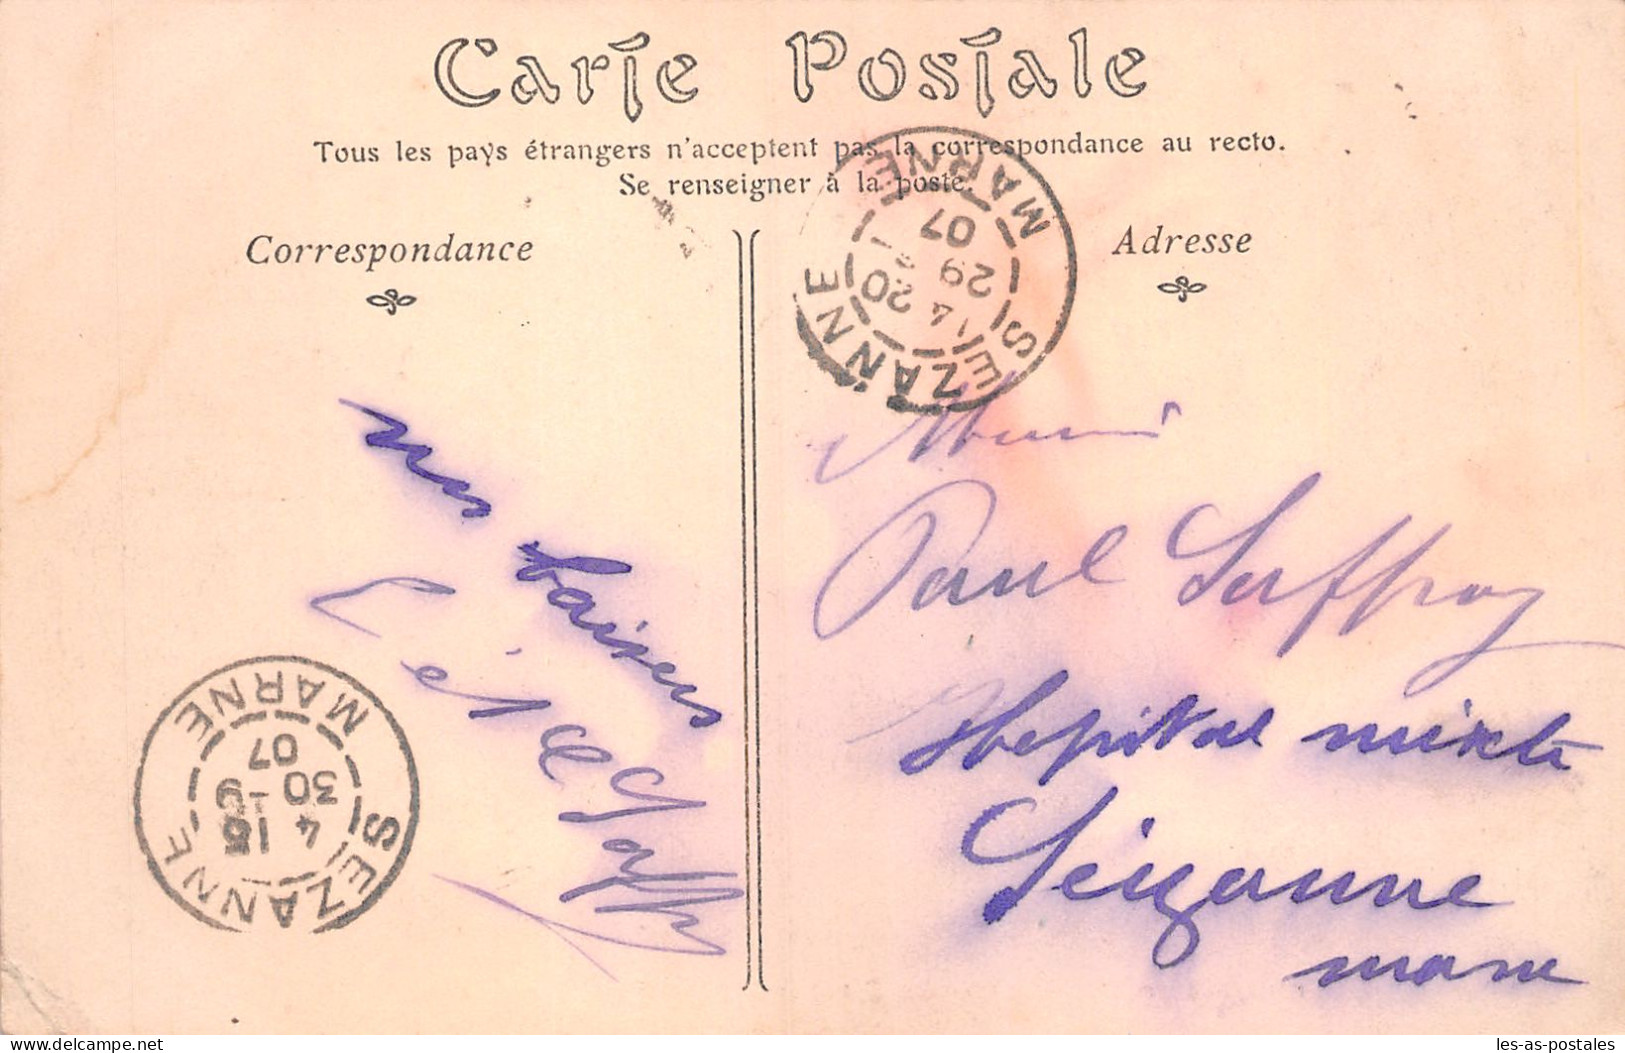 Carte Postale
Tous les pays étrangers n'acceptent pas la correspondance au recto.
Se renseigner à la poste.
Correspondance
Adresse
SEZANNE
MARNE
20
29
4
07
baisers
Paul Saffroy
Hopital mixte
Seizanne
marne
SEZANNE
MARNE
15
30
4
07
les-as-postales
delcampe.net